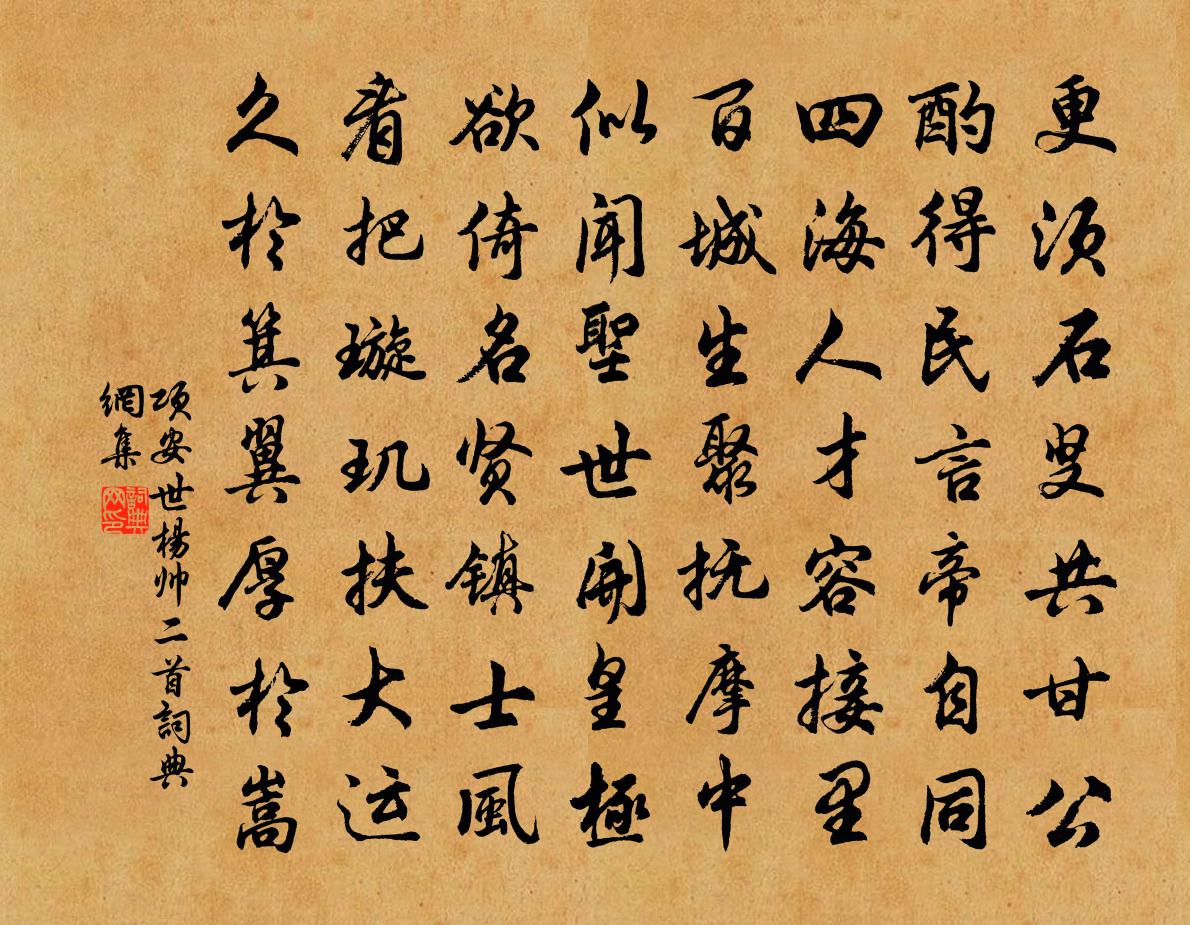 更须石叟共甘公
酌得民言帝自同
四海人才容接里
百城生聚抚摩中
似闻聖世開皇極
欲倚名贤镇士風
看把璇玑扶大运
久於箕翼厚於嵩
項安世楊帅二首詞典
網集
詞典
网印